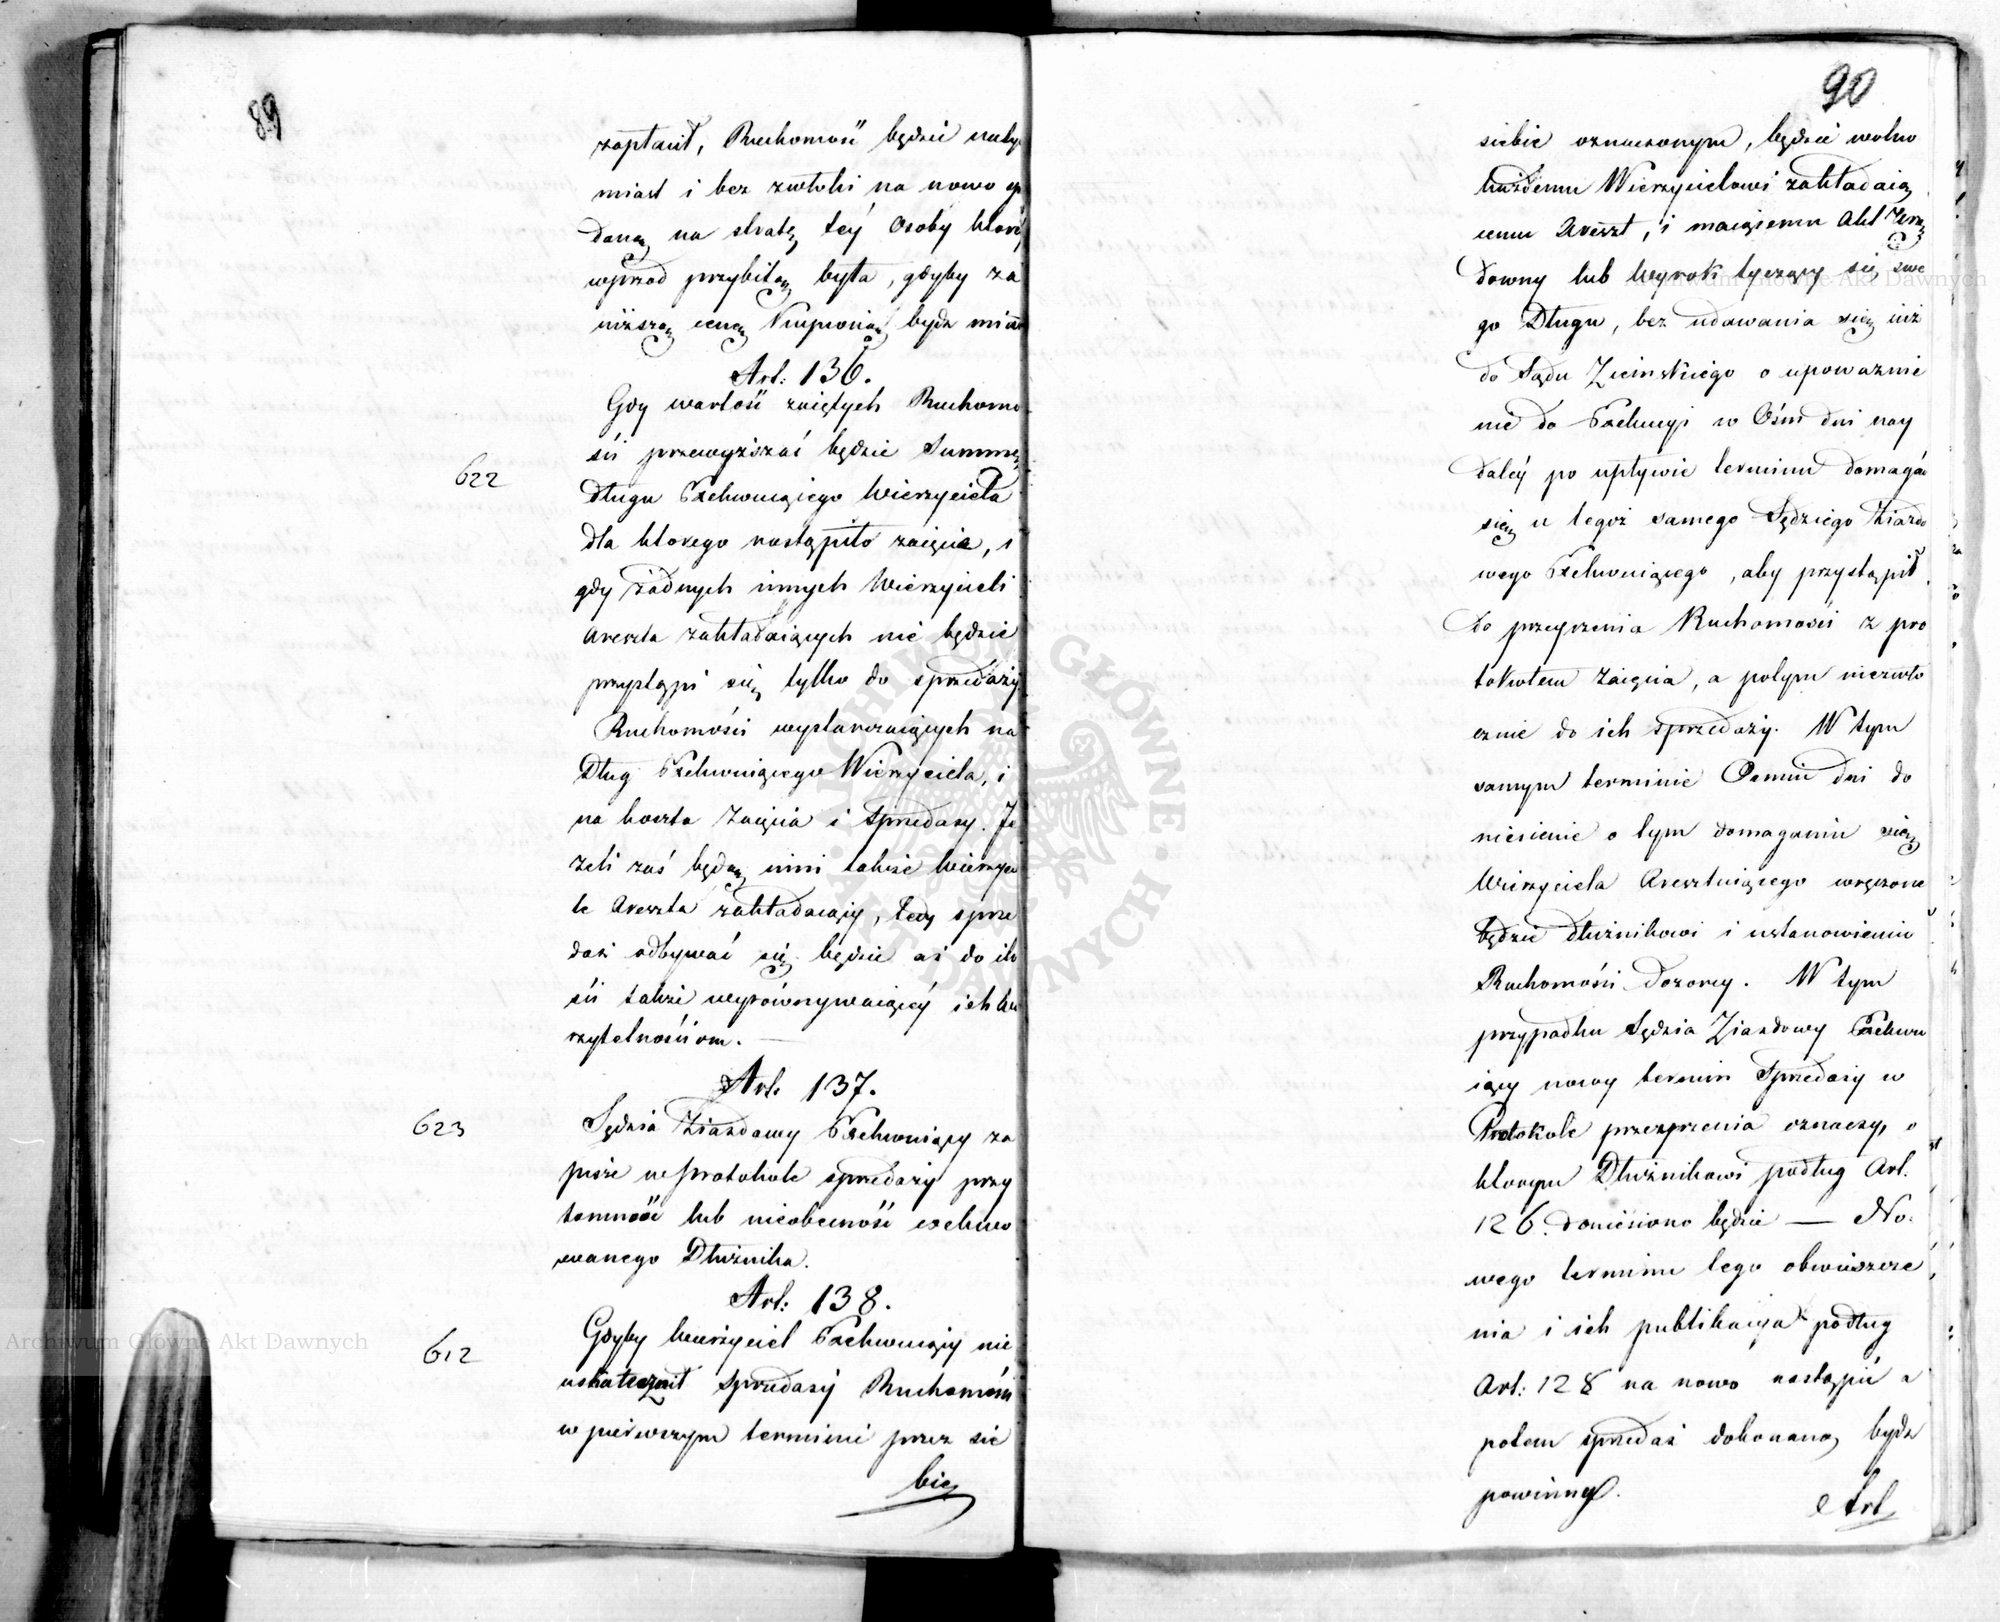 89
zapłacił, Ruchomość będzie natych
miast i bez zwłoki na nowo sp
daną na stratę téy Osoby któréy
wprzod przybitą była, gdyby za
niższą cenę kupioną bydź miała
Art: 136.
Gdy wartość zaiętych Ruchomo
ści przewyższać będzie Summę
622
długu Exekwuiącego Wierzyciela
dla ktorego nastąpiło zaięcie, i
gdy żadnych innych Wierzycieli
areszta zakładaiących nie będzie
przystąpi się tylko do sprzedaży
Ruchomości wystarczaiących na
Dług Exekwuiącego Wierzyciela, i
na koszta Zaięcia i Sprzedaży. Je
żeli zaś będą inni także Wierzycie
le Areszta zakładaiący, tedy sprze
daż odbywać się będzie aż do ilo
ści także wyrównywaiącéy ich wie
rzytelnościom.
Art. 137.
623
Sędzia Ziazdowy Exekwuiący za
pisze w protokole sprzedaży przy
tomność lub nieobecność exekwo
wanego Dłużnika.
Art: 138.
612
Gdyby Wierzyciel Exekwuiący nie
uskutecznił Sprzedaży Ruchomości
w pierwszym terminie przez sie
bie
90
siebie oznaczonym, będzie wolno
każdemu Wierzycielowi zakładaią
cemu Areszt, i maiącemu Akt Urzę
downy lub Wyrok tyczący się swe
go Długu, bez udawania się iuż
do Sądu Ziemskiego o upoważnie
nie do Exekucyi w Ośm dni nay
daléy po upływie terminu domagać
się u tegoż samego Sędziego Ziazdo
wego Exekwuiącego, aby przystąpił
do przeyrzenia Ruchomości z pro
tokołem Zaięcia, a potym niezwło
cznie do ich sprzedaży. W tym
samym terminie Osmiu dni do
niesienie o tym domaganiu się
Wierzyciela Aresztuiącego wręczone
będzie dłużnikowi i ustanowieniu
Ruchomości Dozorcy. W tym
przypadku Sędzia Ziazdowy Exekwu
iący nowy termin Sprzedaży w
Protokole przeyrzenia oznaczy, o
ktorym Dłużnikowi podług Art.
126. doniesiono będzie — No:
wego terminu tego obwieszcze
nia i ich publikacya podług
Art: 128 na nowo nastąpić a
potem sprzedaż dokonaną bydź
powinny.
Art
Archiwum Główne Akt Dawnych
Archiwum Główne Akt Dawnych
ARCHIWUM GŁÓWNE AKT DAWNYCH